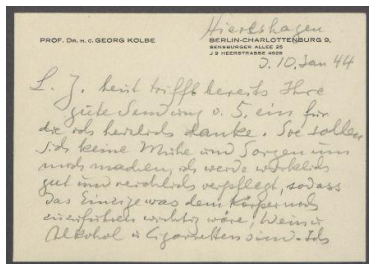 Hiershagen
PROF. DR. H. C. GEORG KOLBE
BERLIN-CHARLOTTENBURG 9,
SENSBURGER ALLEE 25
J 9 HEERSTRASSE 4628
d. 10. Jan 44
L. J. heut trifft bereits Ihre
gute Sendung v. 5. ein, für
die ich herzlich danke. Sie sollen
sich keine Mühe und Sorgen um
mich machen, ich werde wirklich
gut und reichlich verpflegt, sodass
das Einzige was dem Körper noch
zuzuführen wichtig wäre, Wein u
Alkohol u Cigaretten sind. Ich